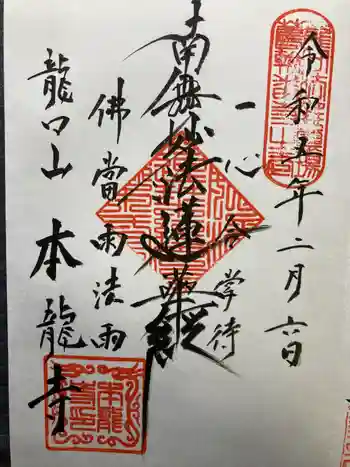 令和五年二月六日
一心合掌待
南無妙法蓮華経
佛當雨法雨
龍口山
本龍寺